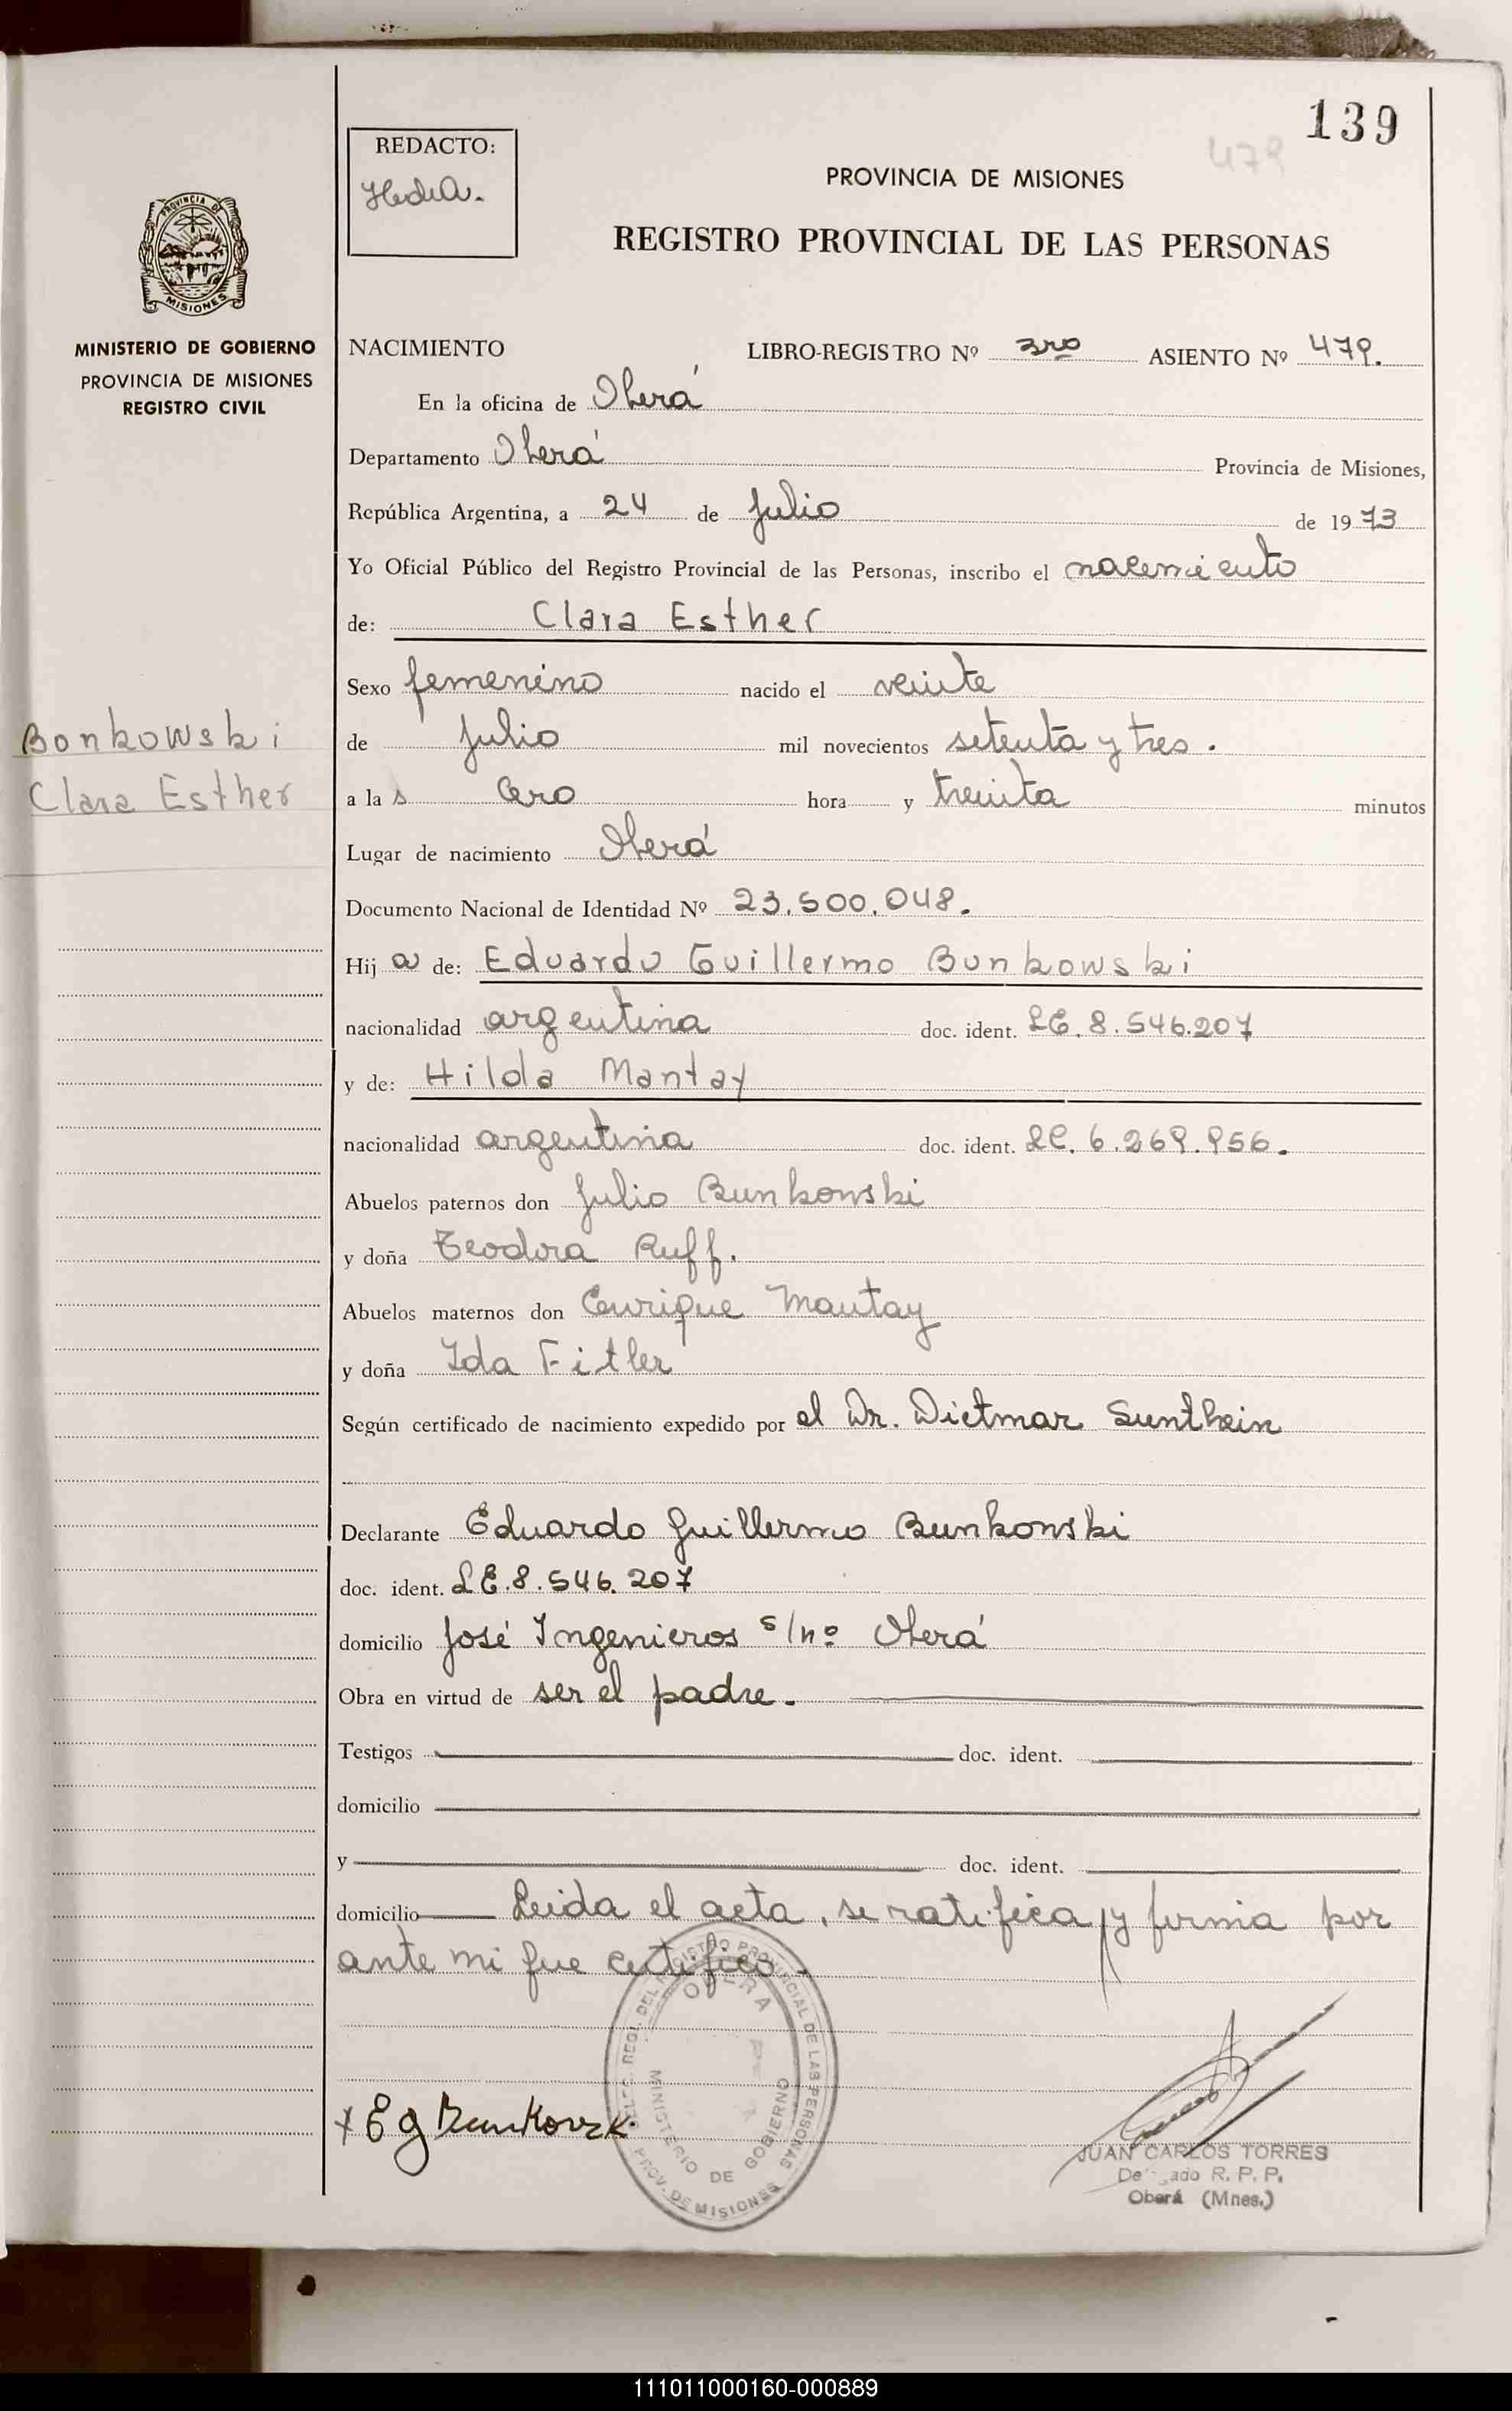 139
479
REDACTO:
PROVINCIA DE MISIONES
REGISTRO PROVINCIAL DE LAS PERSONAS
PROVINCIA DE
MISIONES
MINISTERIO DE GOBIERNO
PROVINCIA DE MISIONES
REGISTRO CIVIL
NACIMIENTO LIBRO-REGISTRO Nº 3ro ASIENTO Nº 479.
En la oficina de Oberá
Departamento Oberá Provincia de Misiones,
República Argentina, a 24 de Julio de 1973
Yo Oficial Público del Registro Provincial de las Personas, inscribo el nacimiento
de: Clara Esther
Sexo femenino nacido el veinte
Bonkowski
de Julio mil novecientos setenta y tres.
Clara Esther
a la s Cero hora y treinta minutos
Lugar de nacimiento Oberá
Documento Nacional de Identidad Nº 23.500.048.
Hij a de: Eduardo Guillermo Bunkowski
nacionalidad argentina doc. ident. LE. 8.546.207
y de: Hilda Mantay
nacionalidad argentina doc. ident. LC. 6.269.956.
Abuelos paternos don Julio Bunkowski
y doña Teodora Ruff.
Abuelos maternos don Enrique Mantay
y doña Ida Fitler
Según certificado de nacimiento expedido por el Dr. Dietmar Sunthein
Declarante Eduardo Guillermo Bunkowski
doc. ident. LE.8.546.207
domicilio José Ingenieros s/nº Oberá
Obra en virtud de ser el padre.
Testigos doc. ident.
domicilio
y doc. ident.
domicilio Leida el acta, se ratifica y firma por
ante mi que certifico.
DELEG. REGI. DEL REGISTRO PROVINCIAL DE LAS PERSONAS
OBERA
MINISTERIO DE GOBIERNO
PROV. DE MISIONES
x E g Bunkowski
JUAN CARLOS TORRES
Delegado R. P. P.
Oberá (Mnes.)
111011000160-000889